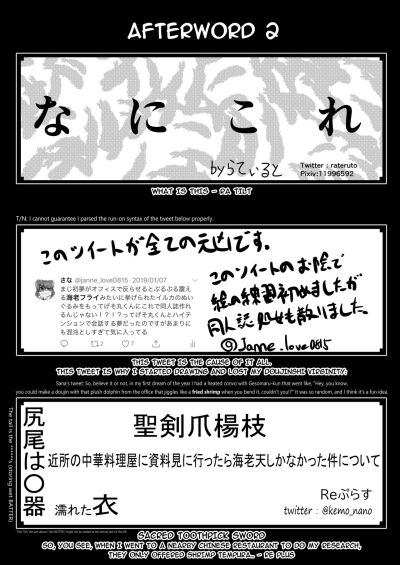 AFTERWORD 2
なにこれ
byらてぃると
Twitter : rateruto
Pixiv:11996592
WHAT IS THIS - RA TILT
T/N: I cannot guarantee I parsed the run-on syntax of the tweet below properly.
このツイートが全ての元凶です。
さな @janne_love0815 · 2019/01/07
まじ初夢がオフィスで反らせるとぷるぷる震え
る海老フライみたいに挙げられたイルカのぬい
ぐるみをもってげそ丸くんにこれで同人誌作れ
なない！？！？ってげそ丸くんとハイテ
ンションで会話する夢だったのですがあまりに
も混沌としすぎて気に入ってる
2
7
このツイートのお陰で
絵の練習初めましたが
同人誌処女も散りました。
©Janne_love0815
THIS TWEET IS THE CAUSE OF IT ALL.
THIS TWEET IS WHY I STARTED DRAWING AND LOST MY DOUJINSHI VIRGINITY.
Sana's tweet: So, believe it or not, in my first dream of the year I had a heated convo with Gesomaru-kun that went like, "Hey, you know,
you could make a doujin with that plush dolphin from the office that jiggles like a fried shrimp when you bend it, couldn't you!?" It was so random, and I think it's a fun idea.
尻尾は〇器
聖剣爪楊枝
近所の中華料理屋に資料見に行ったら海老天しかなかった件について
濡れた衣
Reぷらす
twitter : @kemo_nano
SACRED TOOTHPICK SWORD
SO, YOU SEE, WHEN I WENT TO A NEARBY CHINESE RESTAURANT TO DO MY RESEARCH,
THEY ONLY OFFERED SHRIMP TEMPURA. - RE PLUS